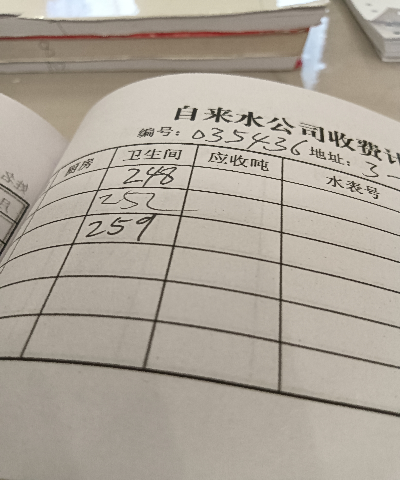 自来水公司收费
编号: 035436 地址: 3-
厨房 卫生间 应收吨 水表号
248
252
259